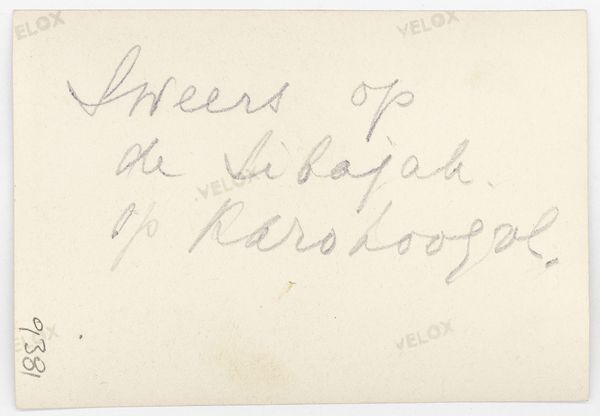 VELOX
VELOX
Sweers op
de Sibajak
VELOX
op Karohoogvl.
VELOX
VELOX
9381